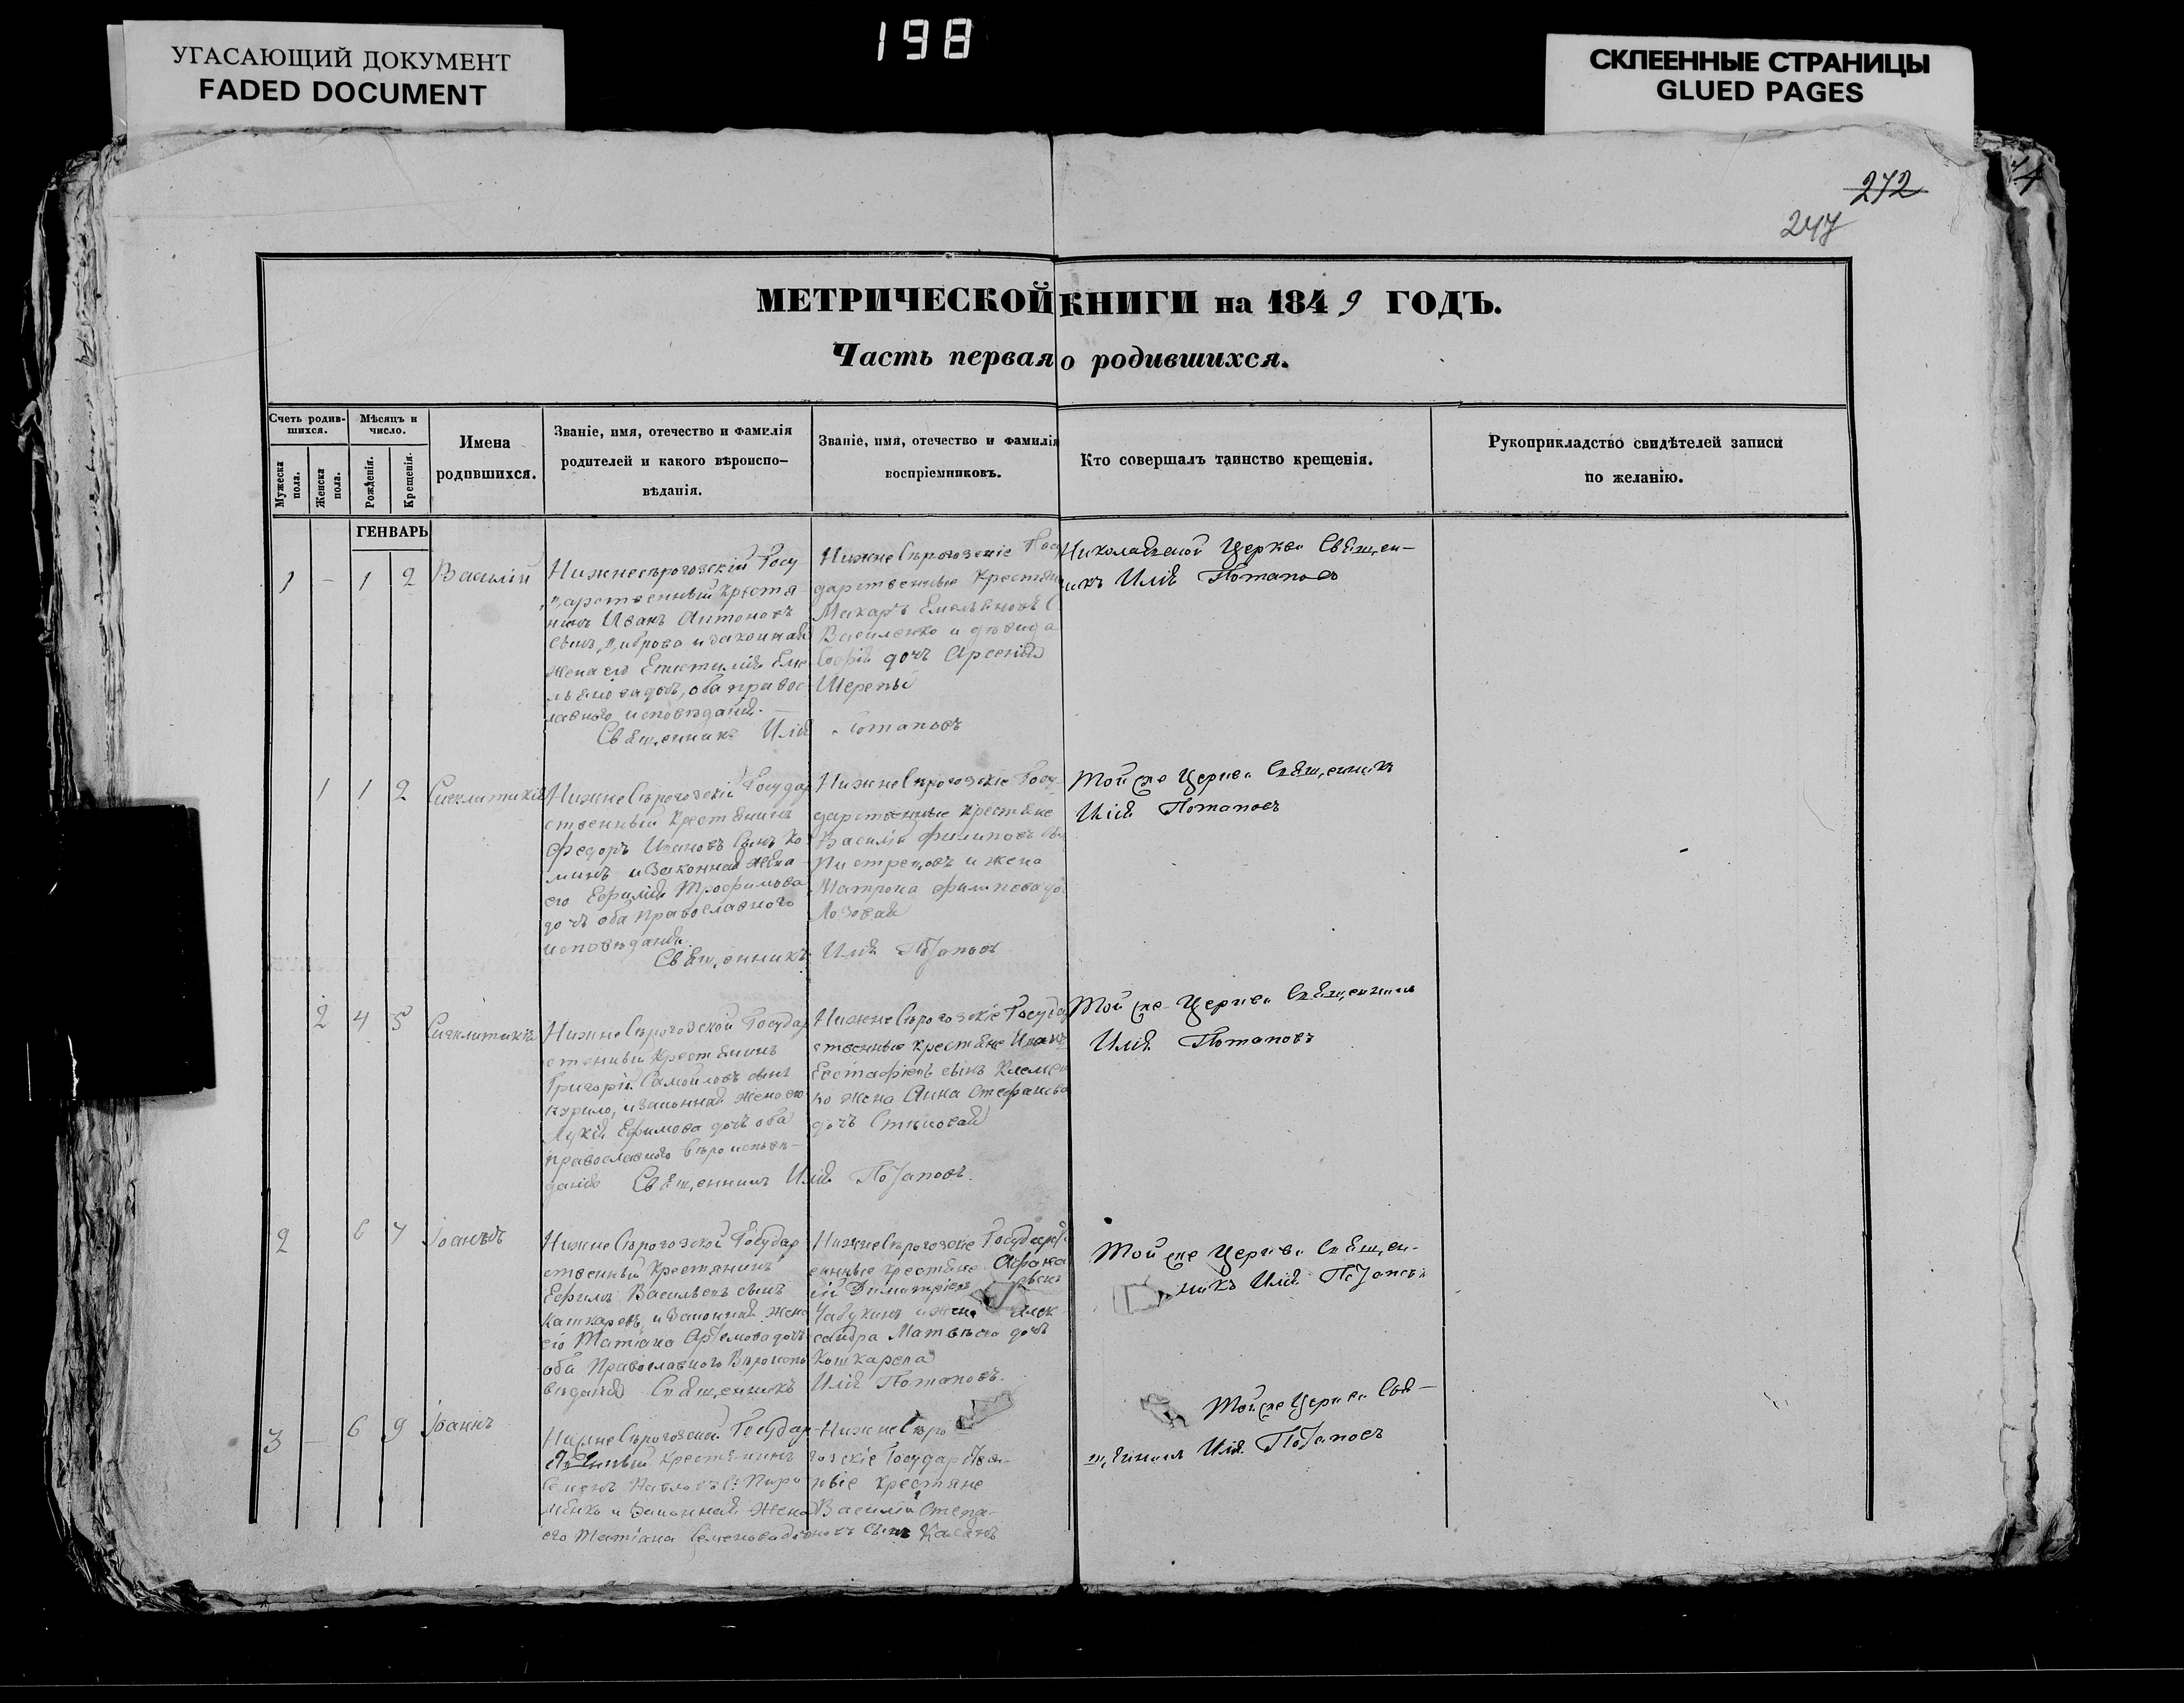 198
УГАСАЮЩИЙ ДОКУМЕНТ
FADED DOCUMENT
СКЛЕЕННЫЕ СТРАНИЦЫ
GLUED PAGES
272
247
МЕТРИЧЕСКОЙ КНИГИ на 1849 ГОДЪ.
Часть первая о родившихся.
Счетъ родив-
шихся.
Мужеска
пола.
Женска
пола.
Мѣсяцъ и
число.
Рожденія.
Крещенія.
Имена
родившихся.
Званіе, имя, отечество и фамилія
родителей и какого вѣроиспо-
вѣданія.
Званіе, имя, отечество и фамилія
воспріемниковъ.
Кто совершалъ таинство крещенія.
Рукоприкладство свидѣтелей записи
по желанію.
ГЕНВАРЬ
1 – 1 2
Василій
Нижнесѣрогозскій Госу
дарственный крестя
нинъ Иванъ Антоновъ
сынъ Диброва и законная
жена его Епистимія Еме
льянова дочь, оба правос
лавного исповѣданія.
Священникъ Илія Потаповъ
НижнеСѣрогозскіе Госу
дарственные крестьян
Макаръ Емельяновъ
Василенко и дѣвица
Софія дочь Арсенія
Шерепы
Николаевской Церкви Священ–
никъ Илія Потаповъ
1 1 2
Сигклитикія
НижнеСѣрогозскій Государ
ственный Крестьянинъ
Федоръ Ивановъ сынъ Хо
минъ и Законная жена
его Ефимія Трофимова
дочь оба Православного
исповѣданія.
Священникъ Илія Потаповъ
НижнеСѣрогозскіе Госу-
дарственные крестьяне
Василій Филиповъ сын
Пистрецовъ и жена
Матрона Филипова до
Лозовая
Той же Церкви Священникъ
Илія Потаповъ
2 4 5
Сигклитикія
НижнеСѣрогозской Государ
ственный Крестьянинъ
Григорій Самойловъ сынъ
Курило, и законная жена его
Лукія Ефимова дочь оба
православного вѣроисповѣ–
данія Священникъ Илія Потаповъ.
НижнеСѣрогозскіе Государ
ственные крестьяне Иванъ
Евстафіевъ сынъ Клемен
ко жена Анна Стефанова
дочь
Той же Церкви Священникъ
Илія Потаповъ
2 6 7
Іоаннъ
НижнеСѣрогозской Государ
ственный Крестянинъ
Ефимъ Васильевъ сынъ
Кашкаревъ, и Законная жена
его Татіана Артемова дочь
оба Православного Вѣроиспо
вѣданія Священникъ Илія Потаповъ.
НижнеСѣрогозскіе Государст
венные крестьяне Афана
сій Димитріевъ сынъ
Чабукинъ и жена Алек
сандра Матвѣева дочь
Кошкарева
Той же Церкви Священ-
никъ Илія Потаповъ
3 – 6 9
Іоаннъ
НижнеСѣрогозскій Государ
ственный Крестьянинъ
Семенъ Павловъ С:
и Законная Жена
его Татіана Семенова до
НижнеСѣро
гозскіе Государствен-
ные крестяне
Василій Степа-
новъ сынъ
Той же Церкви Свя–
щенникъ Илія Потаповъ